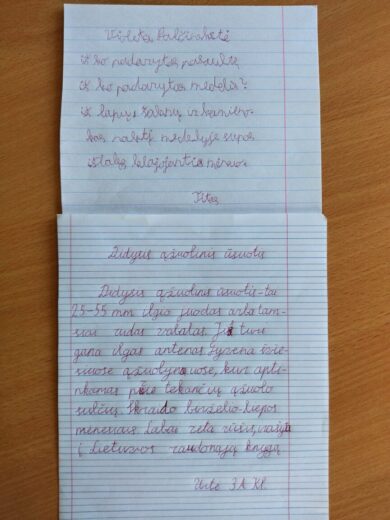 Violeta Palčinskaitė
iš ko padarytas pasaulis
iš ko padarytas medelis?
iš lapų, šakų ir kamieno.
kas naktį medelyje supas
Titas
Didysis ąžuolinis ūsuotis
Didysis ąžuolinis ūsuotis-tai
25-55 mm ilgio juodas arba tam-
siai rudas vabalas. Jis turi
gana ilgas antenas. Gyvena švie-
suose ąžuolynuose, kur apti-
nkamas prie tekančių ąžuolo
sulčių. Skraido birželio-liepos
mėnesiais. Labai reta rūšis, įrašyta
į Lietuvos raudonąją knygą.
3A kl.